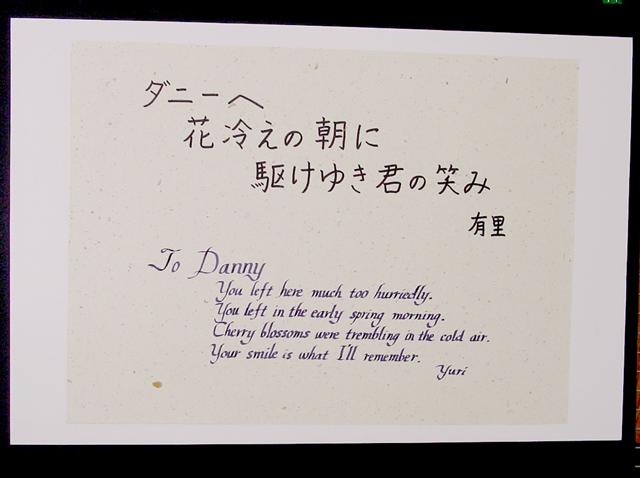 ダニーへ
花冷えの朝に
駆けゆき君の笑み
有里
To Danny
You left here much too hurriedly.
You left in the early spring morning.
Cherry blossoms were trembling in the cold air.
Your smile is what I'll remember.
Yuri